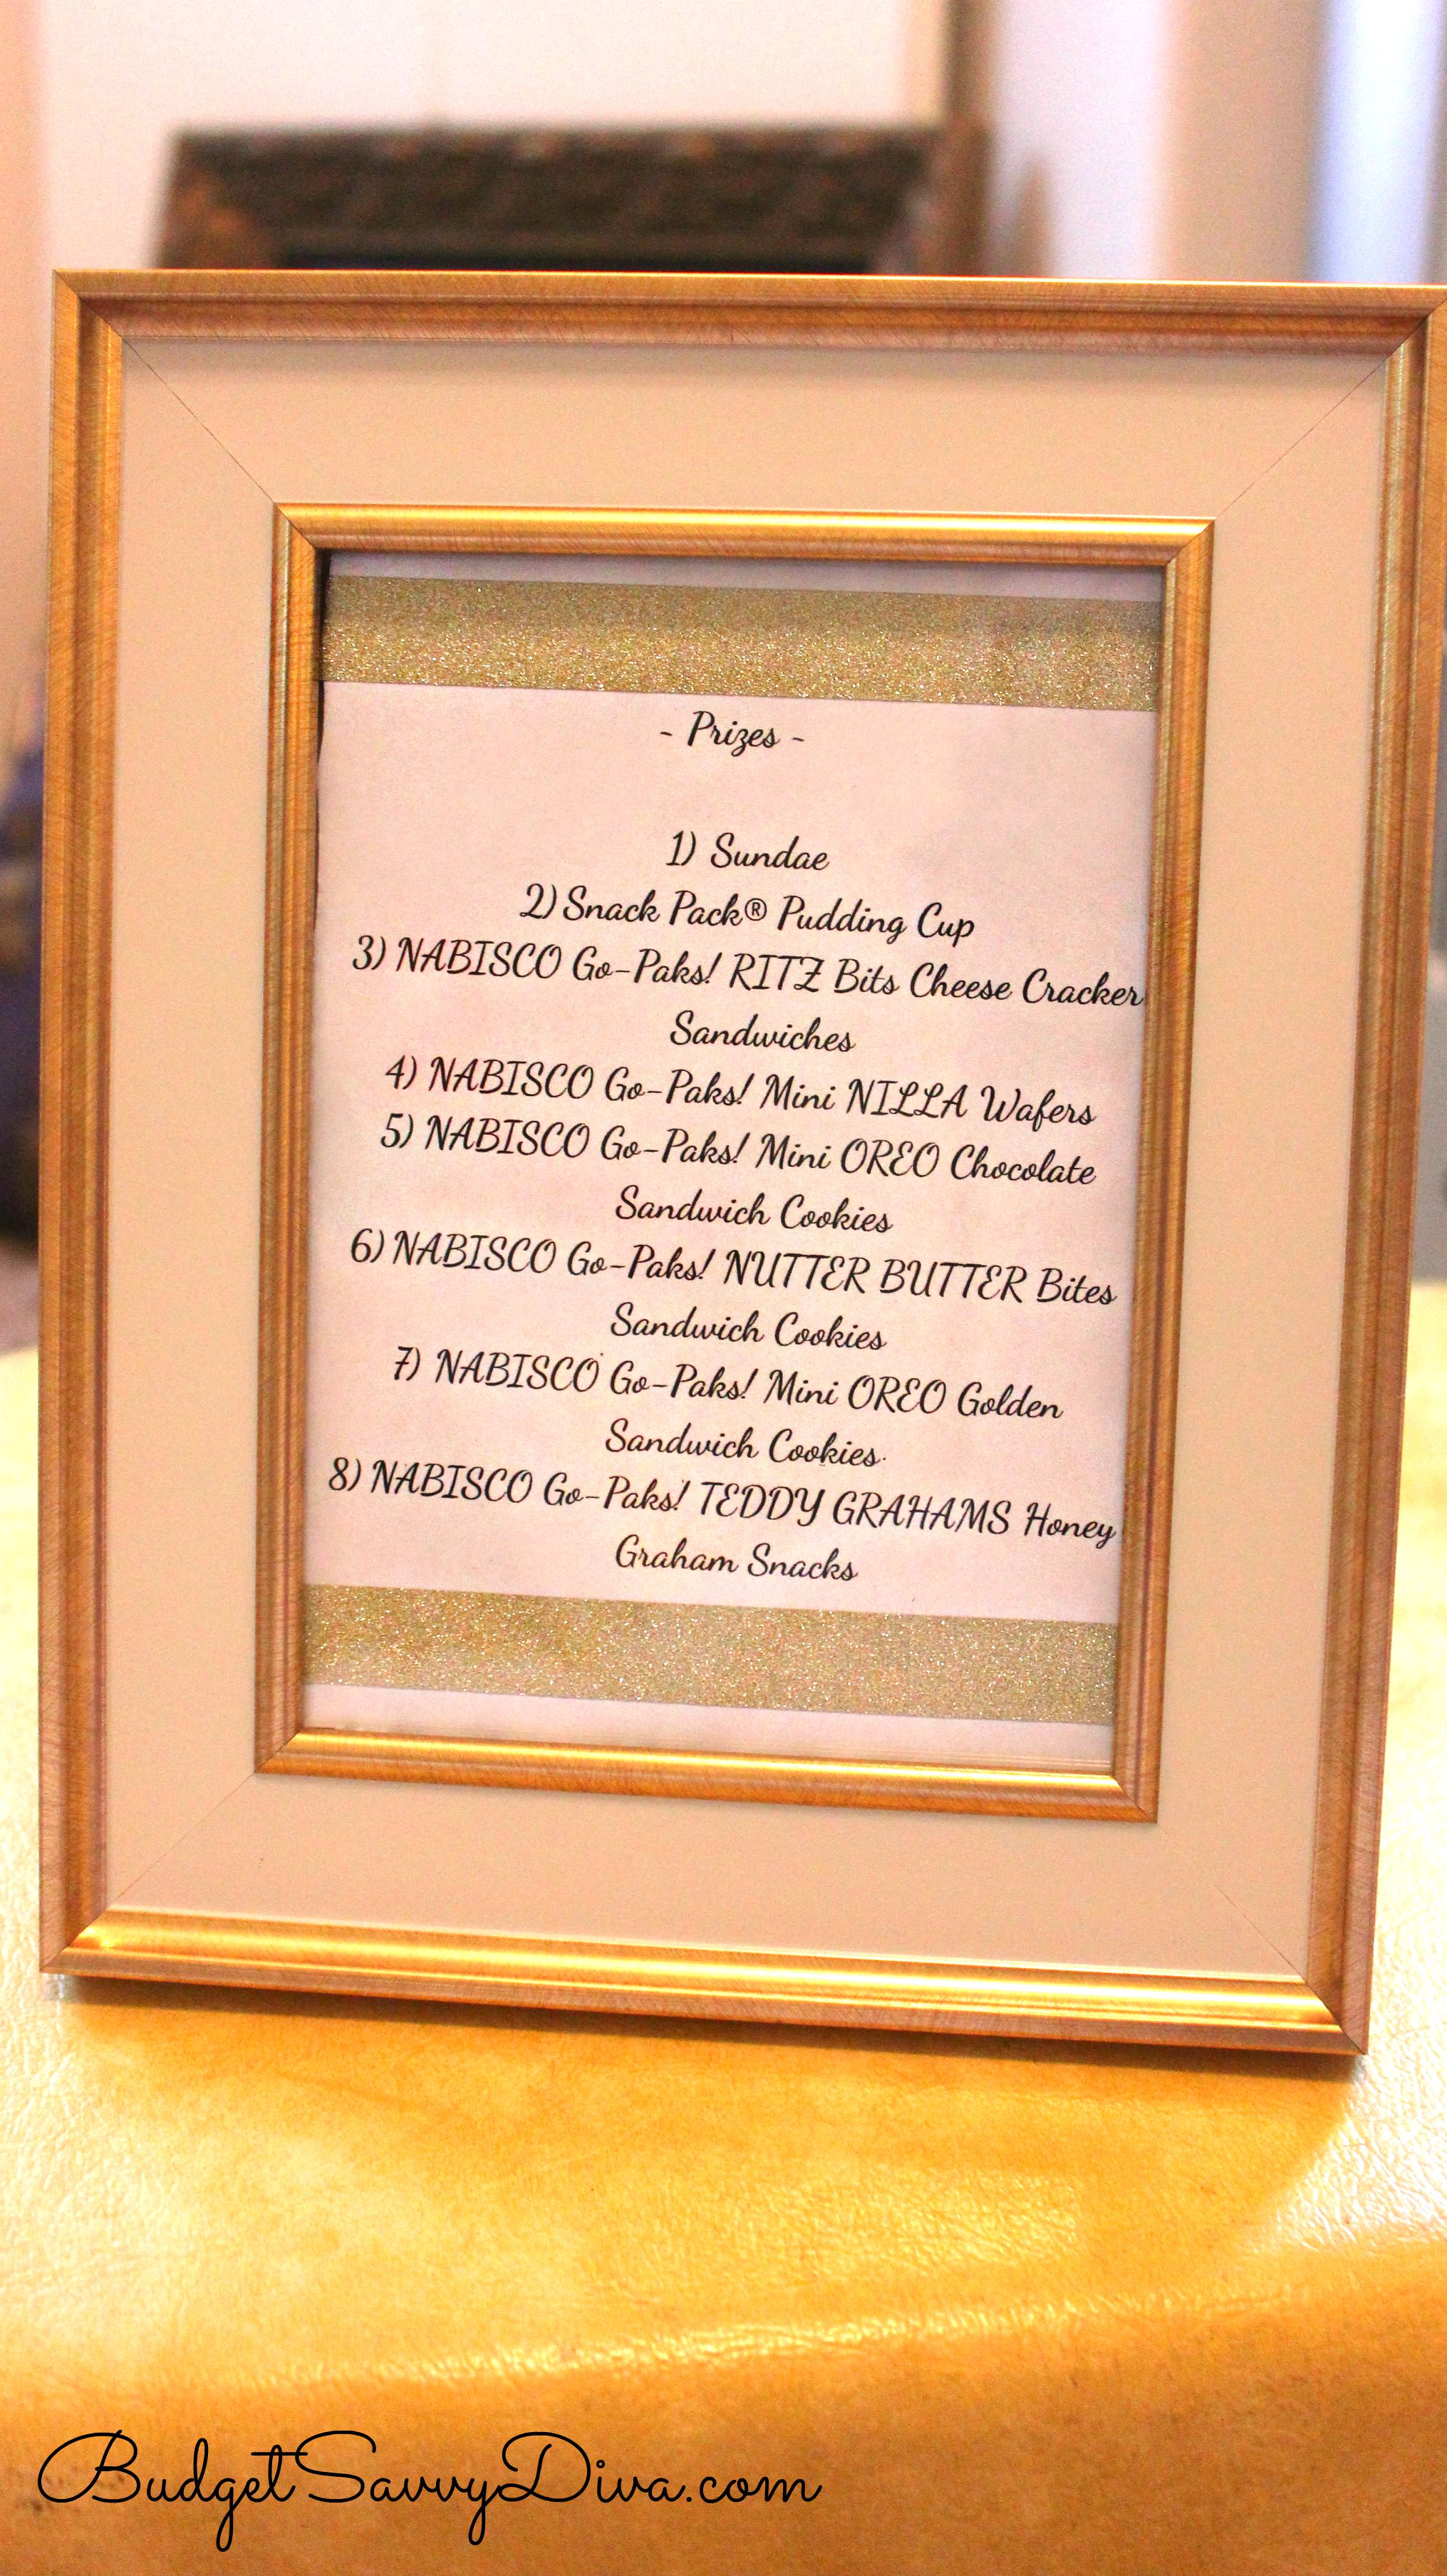 - Prizes -
1) Sundae
2) Snack Pack® Pudding Cup
3) NABISCO Go-Paks! RITZ Bits Cheese Cracker
Sandwiches
4) NABISCO Go-Paks! Mini NILLA Wafers
5) NABISCO Go-Paks! Mini OREO Chocolate
Sandwich Cookies
6) NABISCO Go-Paks! NUTTER BUTTER Bites
Sandwich Cookies
7) NABISCO Go-Paks! Mini OREO Golden
Sandwich Cookies
8) NABISCO Go-Paks! TEDDY GRAHAMS Honey
Graham Snacks
BudgetSavvyDiva.com